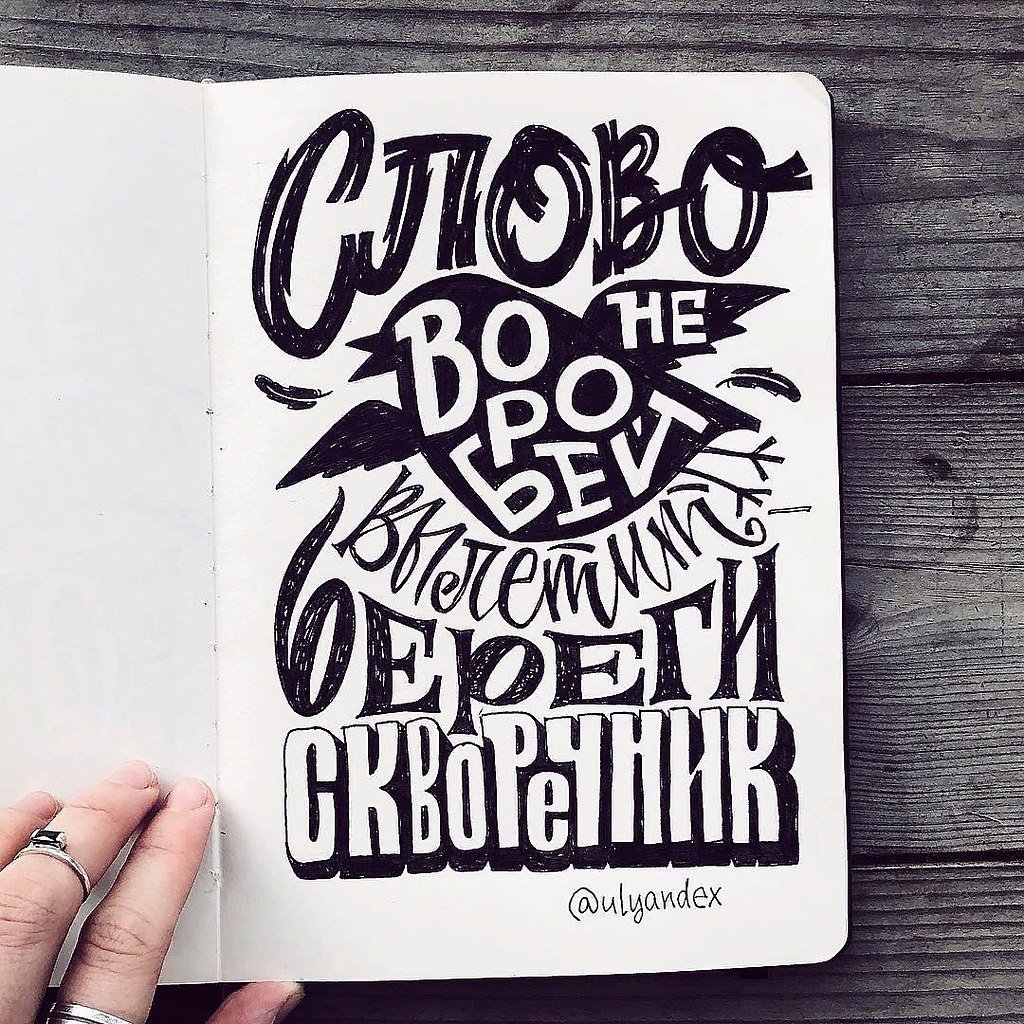 Слово
не
воробей
вылетит
береги
скворечник
@ulyandex